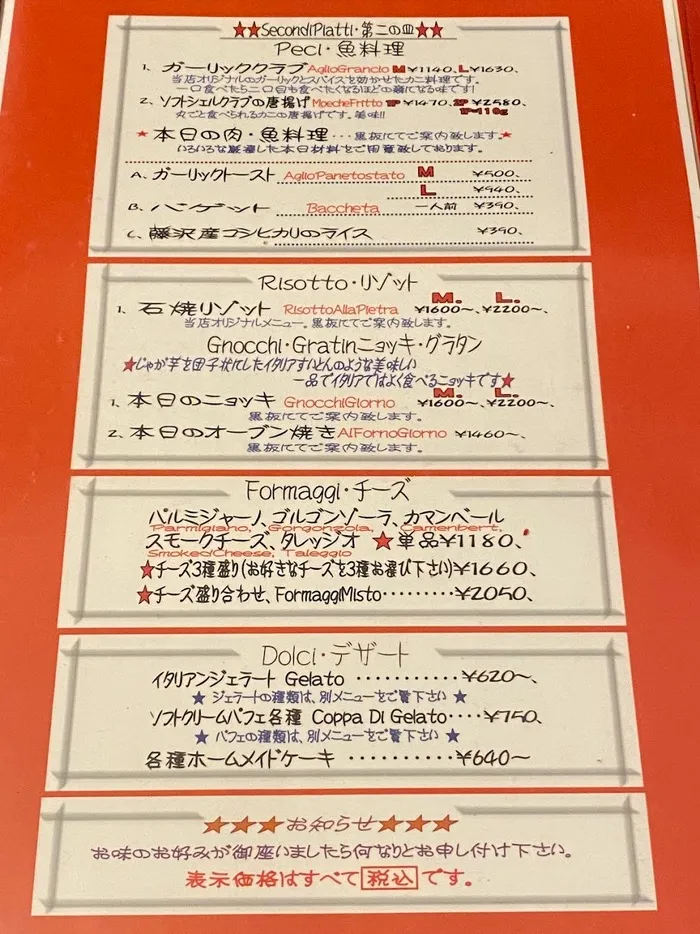 ★★SecondiPiatti・第二の皿★★
Peci・魚料理
1、ガーリッククラブ AglioGrancio M¥1140、L¥1630、
当店オリジナルのガーリックとスパイスを効かせたカニ料理です。
一口食べたら二口目も食べたくなるほどの癖になる味です!
2、ソフトシェルクラブの唐揚げ MoecheFritto 1P ¥1470、2P ¥2580、
丸ごと食べられるカニの唐揚げです。美味!! 1P=110g
★本日の肉・魚料理・・・黒板にてご案内致します。★
いろいろな厳選した本日材料をご用意致しております。
A、ガーリックトースト AglioPanetostato M ¥500、
L ¥940、
B、バゲット Baccheta 一人前 ¥390、
C、藤沢産コシヒカリのライス ¥390、
Risotto・リゾット
M. L.
1、石焼リゾット RisottoAllaPietra ¥1600〜、¥2200〜、
当店オリジナルメニュー。黒板にてご案内致します。
Gnocchi・Gratinニョッキ・グラタン
★じゃが芋を団子状にしたイタリアすいとんのような美味しい
一品でイタリアではよく食べるニョッキです★
M. L.
1、本日のニョッキ GnocchiGiorno ¥1600〜、¥2200〜、
黒板にてご案内致します。
2、本日のオーブン焼き AlFornoGiorno ¥1460〜、
黒板にてご案内致します。
Formaggi・チーズ
パルミジャーノ、ゴルゴンゾーラ、カマンベール
Parmigiano, Gorgonzola, Camenbert,
スモークチーズ、タレッジオ ★単品¥1180、
SmokedCheese, Taleggio
★チーズ3種盛り(お好きなチーズを3種お選び下さい)¥1660、
★チーズ盛り合わせ、FormaggiMisto・・・・・・・・・¥2050、
Dolci・デザート
イタリアンジェラート Gelato ・・・・・・・・・・・¥620〜、
★ ジェラートの種類は、別メニューをご覧下さい ★
ソフトクリームパフェ各種 Coppa Di Gelato・・・・¥750、
★ パフェの種類は、別メニューをご覧下さい ★
各種ホームメイドケーキ ・・・・・・・・・・¥640〜
★★★お知らせ★★★
お味のお好みが御座いましたら何なりとお申し付け下さい。
表示価格はすべて税込です。